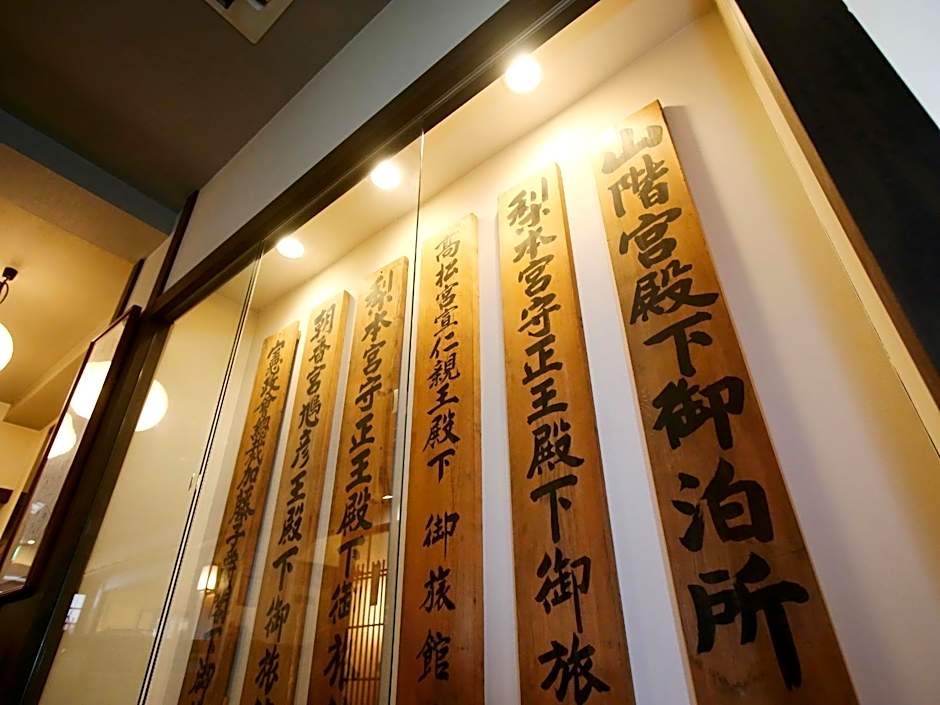 山階宮殿下御泊所
梨本宮守正王殿下御旅
高松宮宣仁親王殿下 御旅館
梨本宮守正王殿下御旅
朝香宮鳩彦王殿下御旅
憲政會總裁加藤子爵閣下御